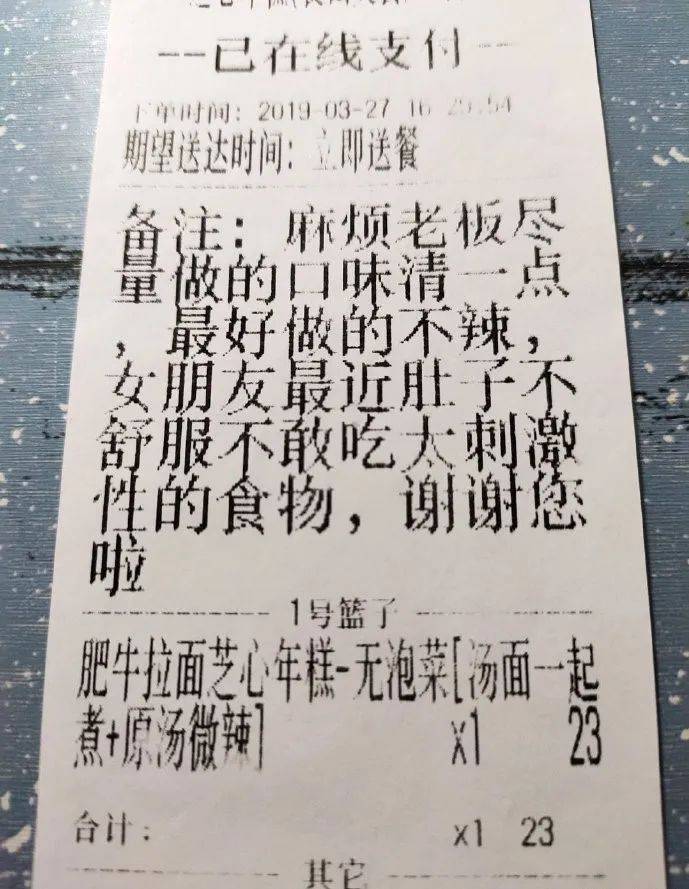 --已在线支付--
下单时间: 2019-03-27 16
期望送达时间: 立即送餐
备注: 麻烦老板尽
量做的口味清一点
, 最好做的不辣,
女朋友最近肚子不
舒服不敢吃太刺激
性的食物, 谢谢您
啦
1号篮子
肥牛拉面芝心年糕-无泡菜[汤面一起
煮+原汤微辣] x1 23
合计: x1 23
其它